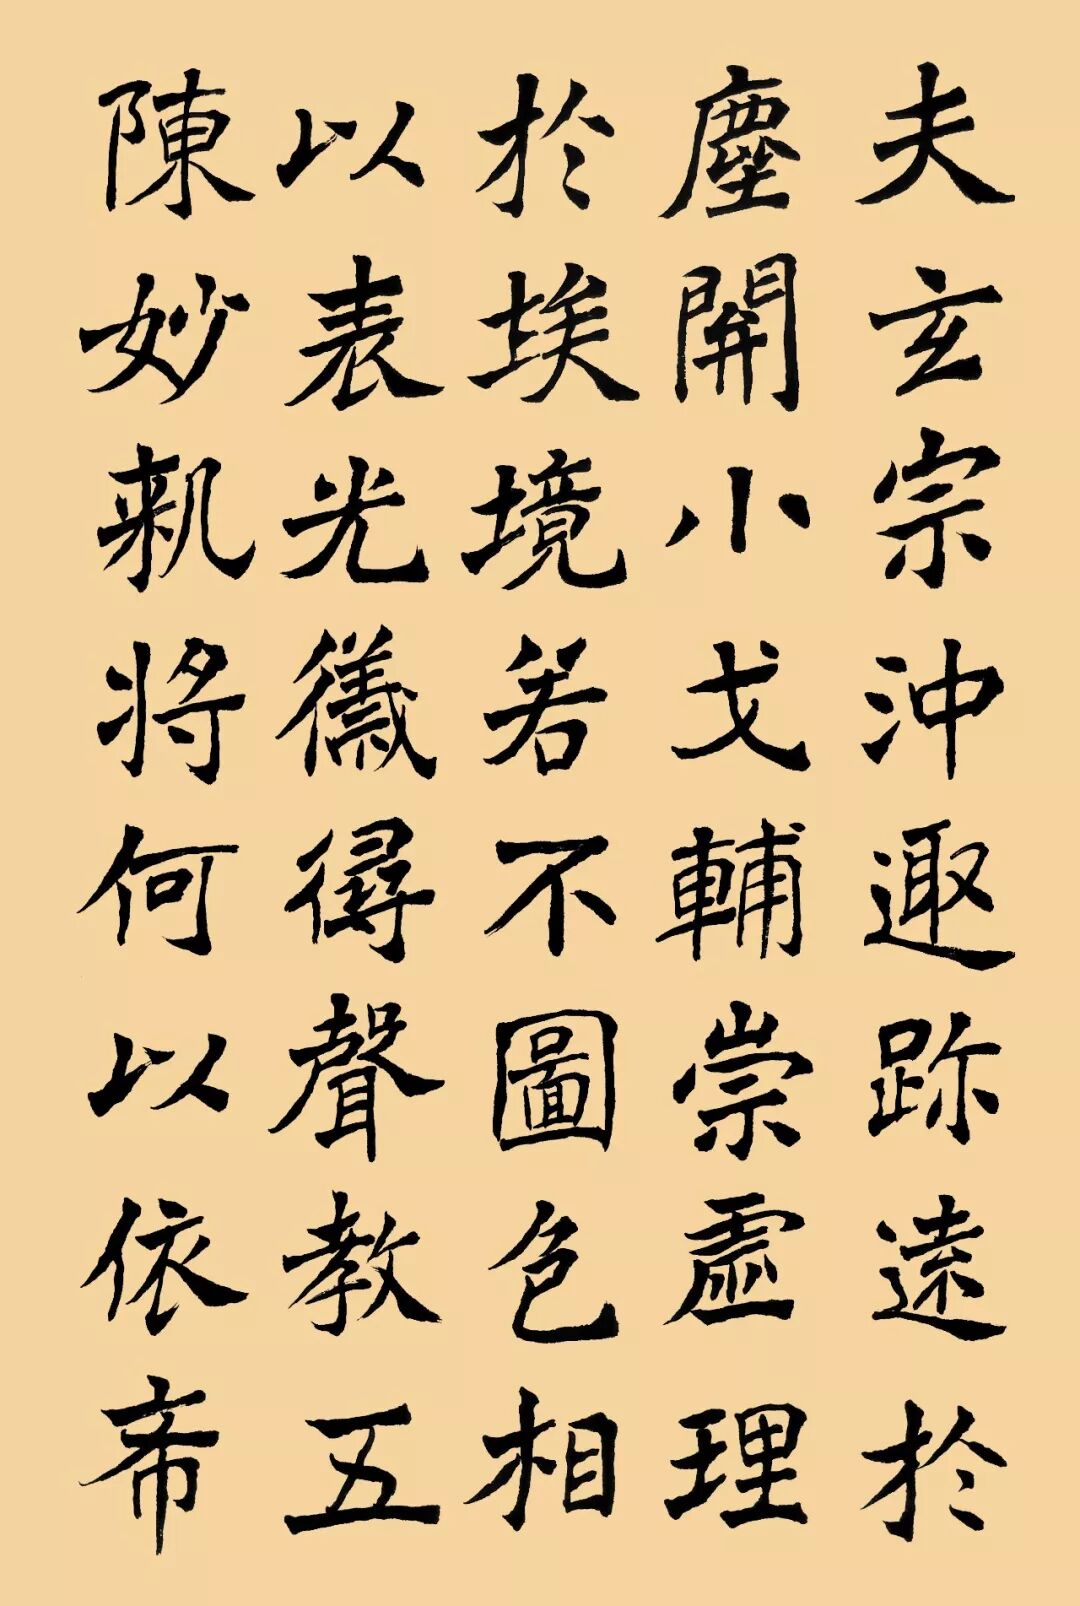 夫玄宗沖邈跡遠於
塵開小戈輔崇虛理
於埃境若不圖色相
以表光徽尋聲教五
陳妙軌將何以依希